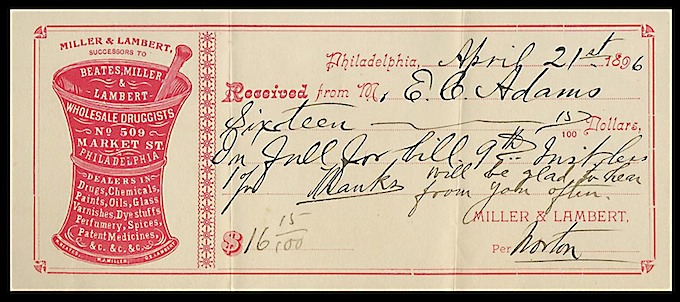 MILLER & LAMBERT,
SUCCESSORS TO
BEATES, MILLER
&
LAMBERT
WHOLESALE DRUGGISTS
No 509
MARKET ST.
PHILADELPHIA
DEALERS IN
Drugs, Chemicals,
Paints, Oils, Glass
Varnishes, Dye stuffs
Perfumery, Spices,
Patent Medicines,
&c. &c. &c.
W.A. MILLER
D.S. LAMBERT
Philadelphia, April 21st 1896
Received from M, E. E. Adams
Sixteen 15/100 Dollars,
In full for bill 9th Inst, less
1% Thanks will be glad to hear
from you often.
MILLER & LAMBERT,
$16 15/100
Per Norton